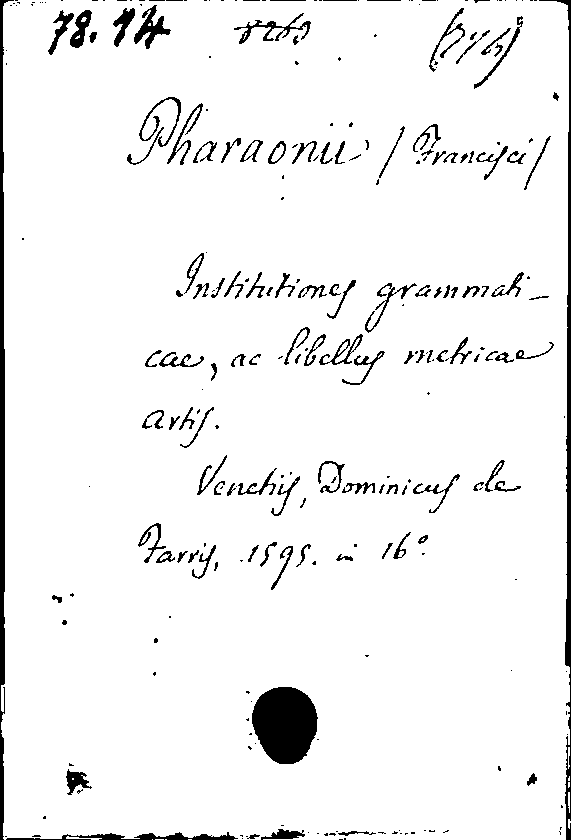 78. 14
Pharaonii / Francisci /
Institutiones grammati-
cae, ac libellus metricae
artis.
Venetiis, Dominicus de
Farris, 1595. in 16°.